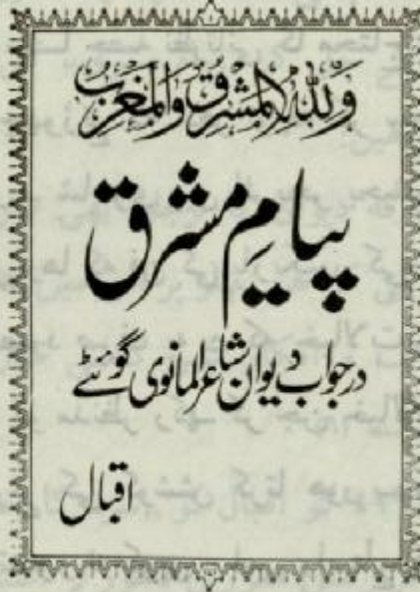 وَلِلّٰہِ الْمَشْرِقُ وَالْمَغْرِبُ
پیامِ مشرق
در جواب دیوان شاعر المانوی گوئٹے
اقبال